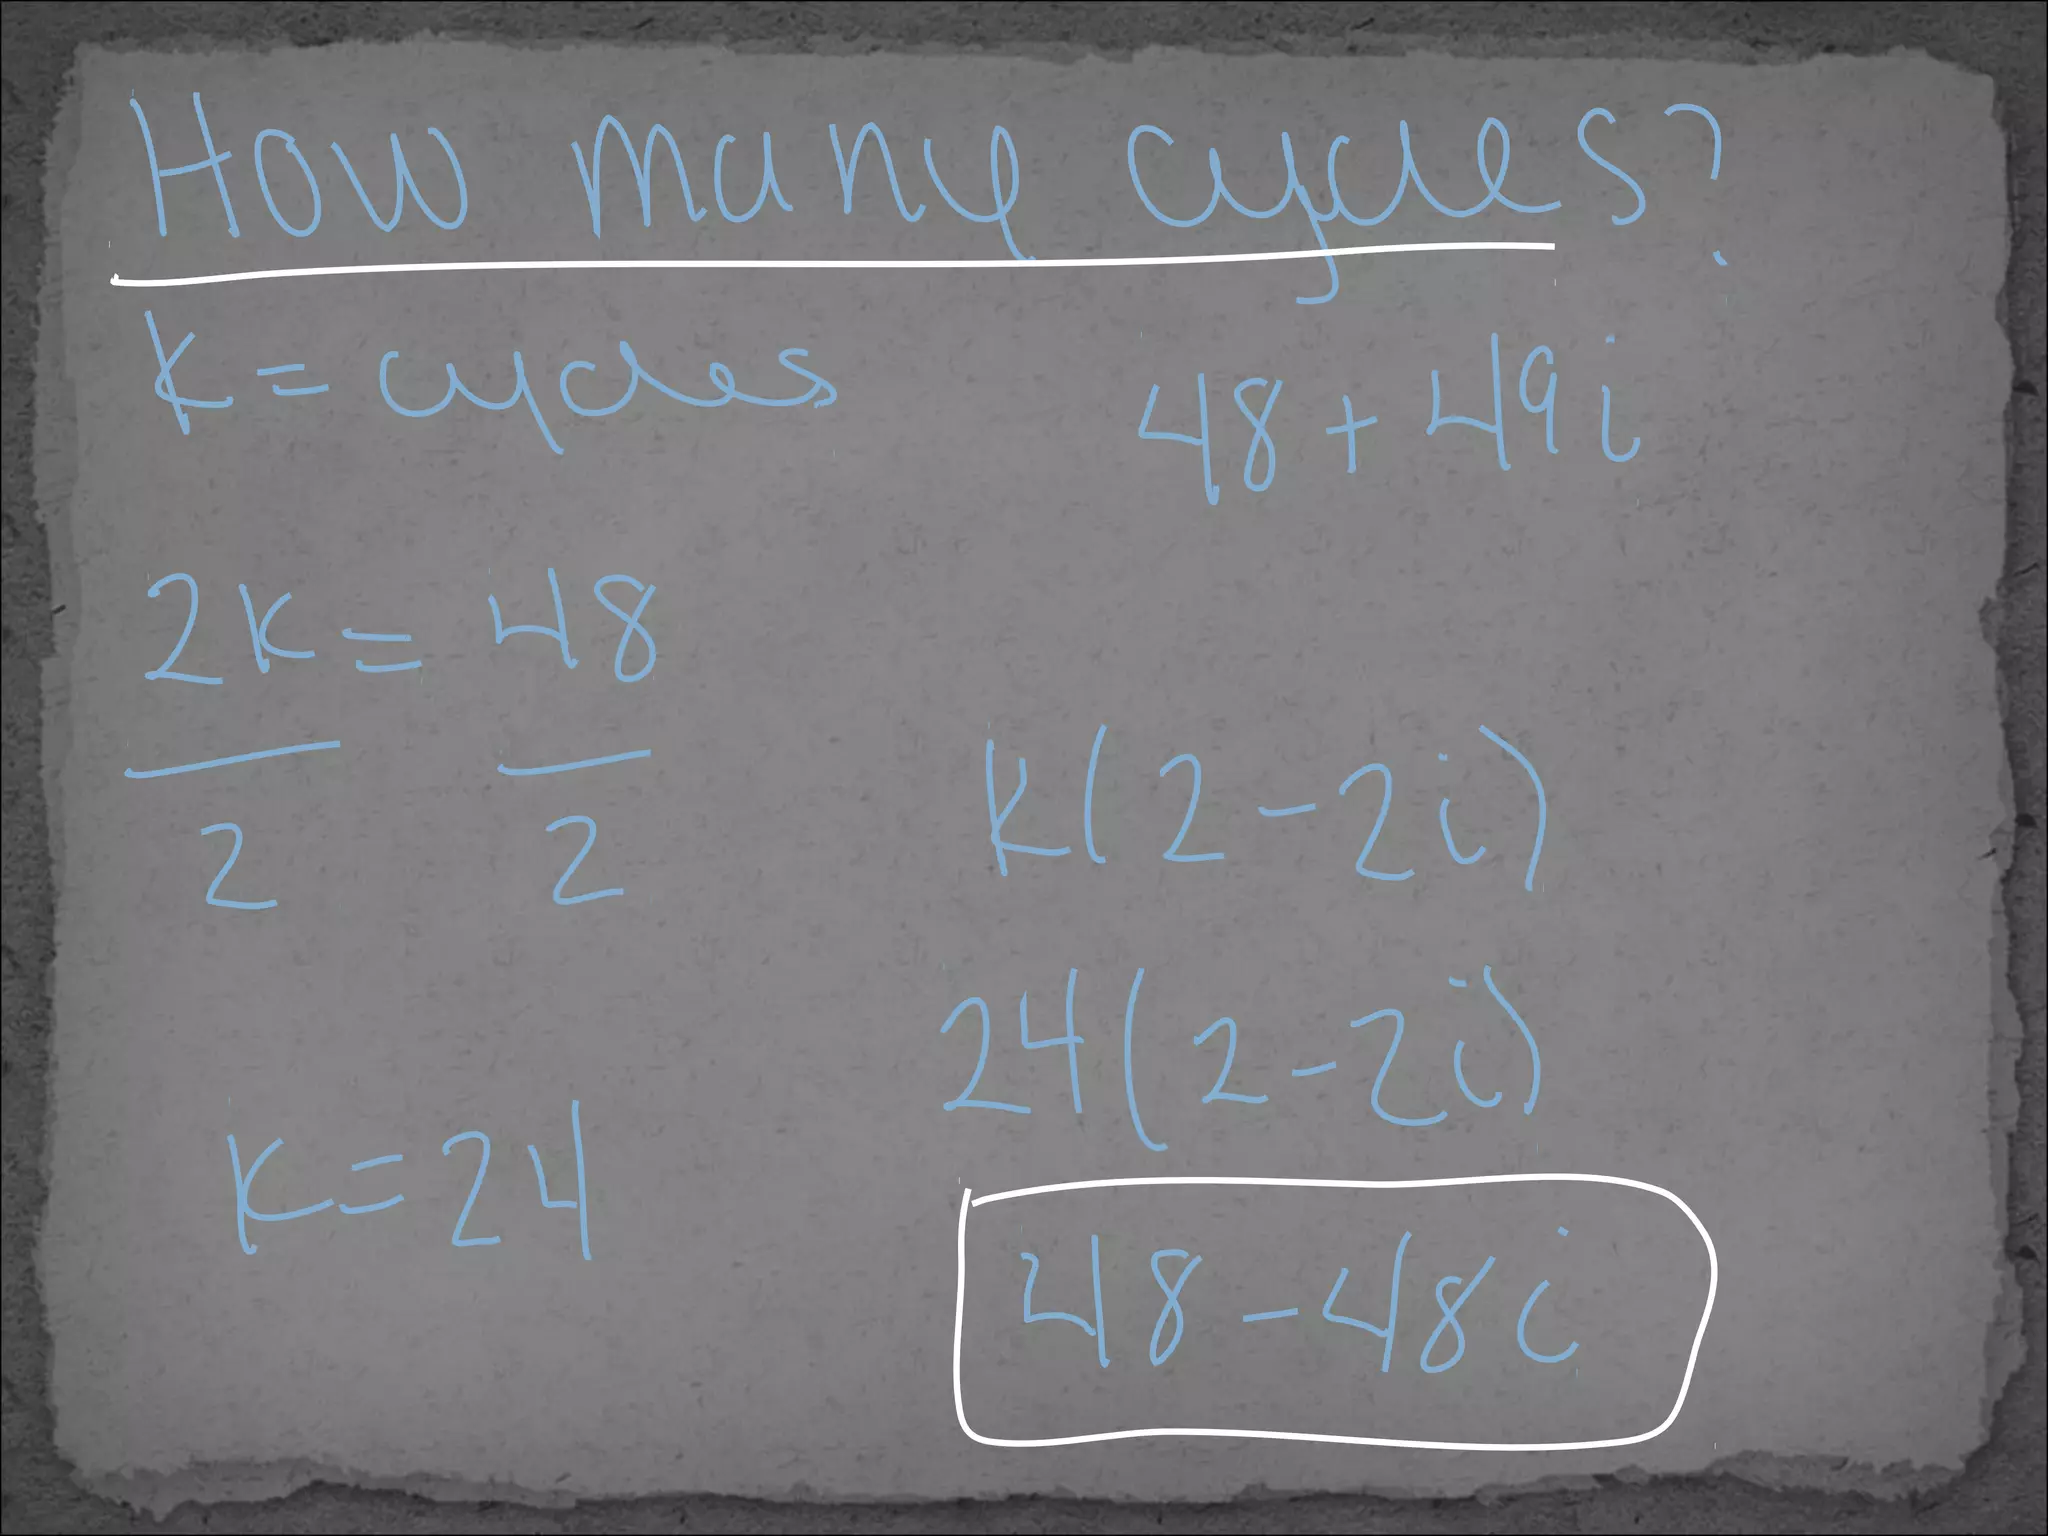 How many cycles?
k = cycles
48 + 49i
2k = 48
2 2
k = 24
k(2 - 2i)
24(2 - 2i)
48 - 48i